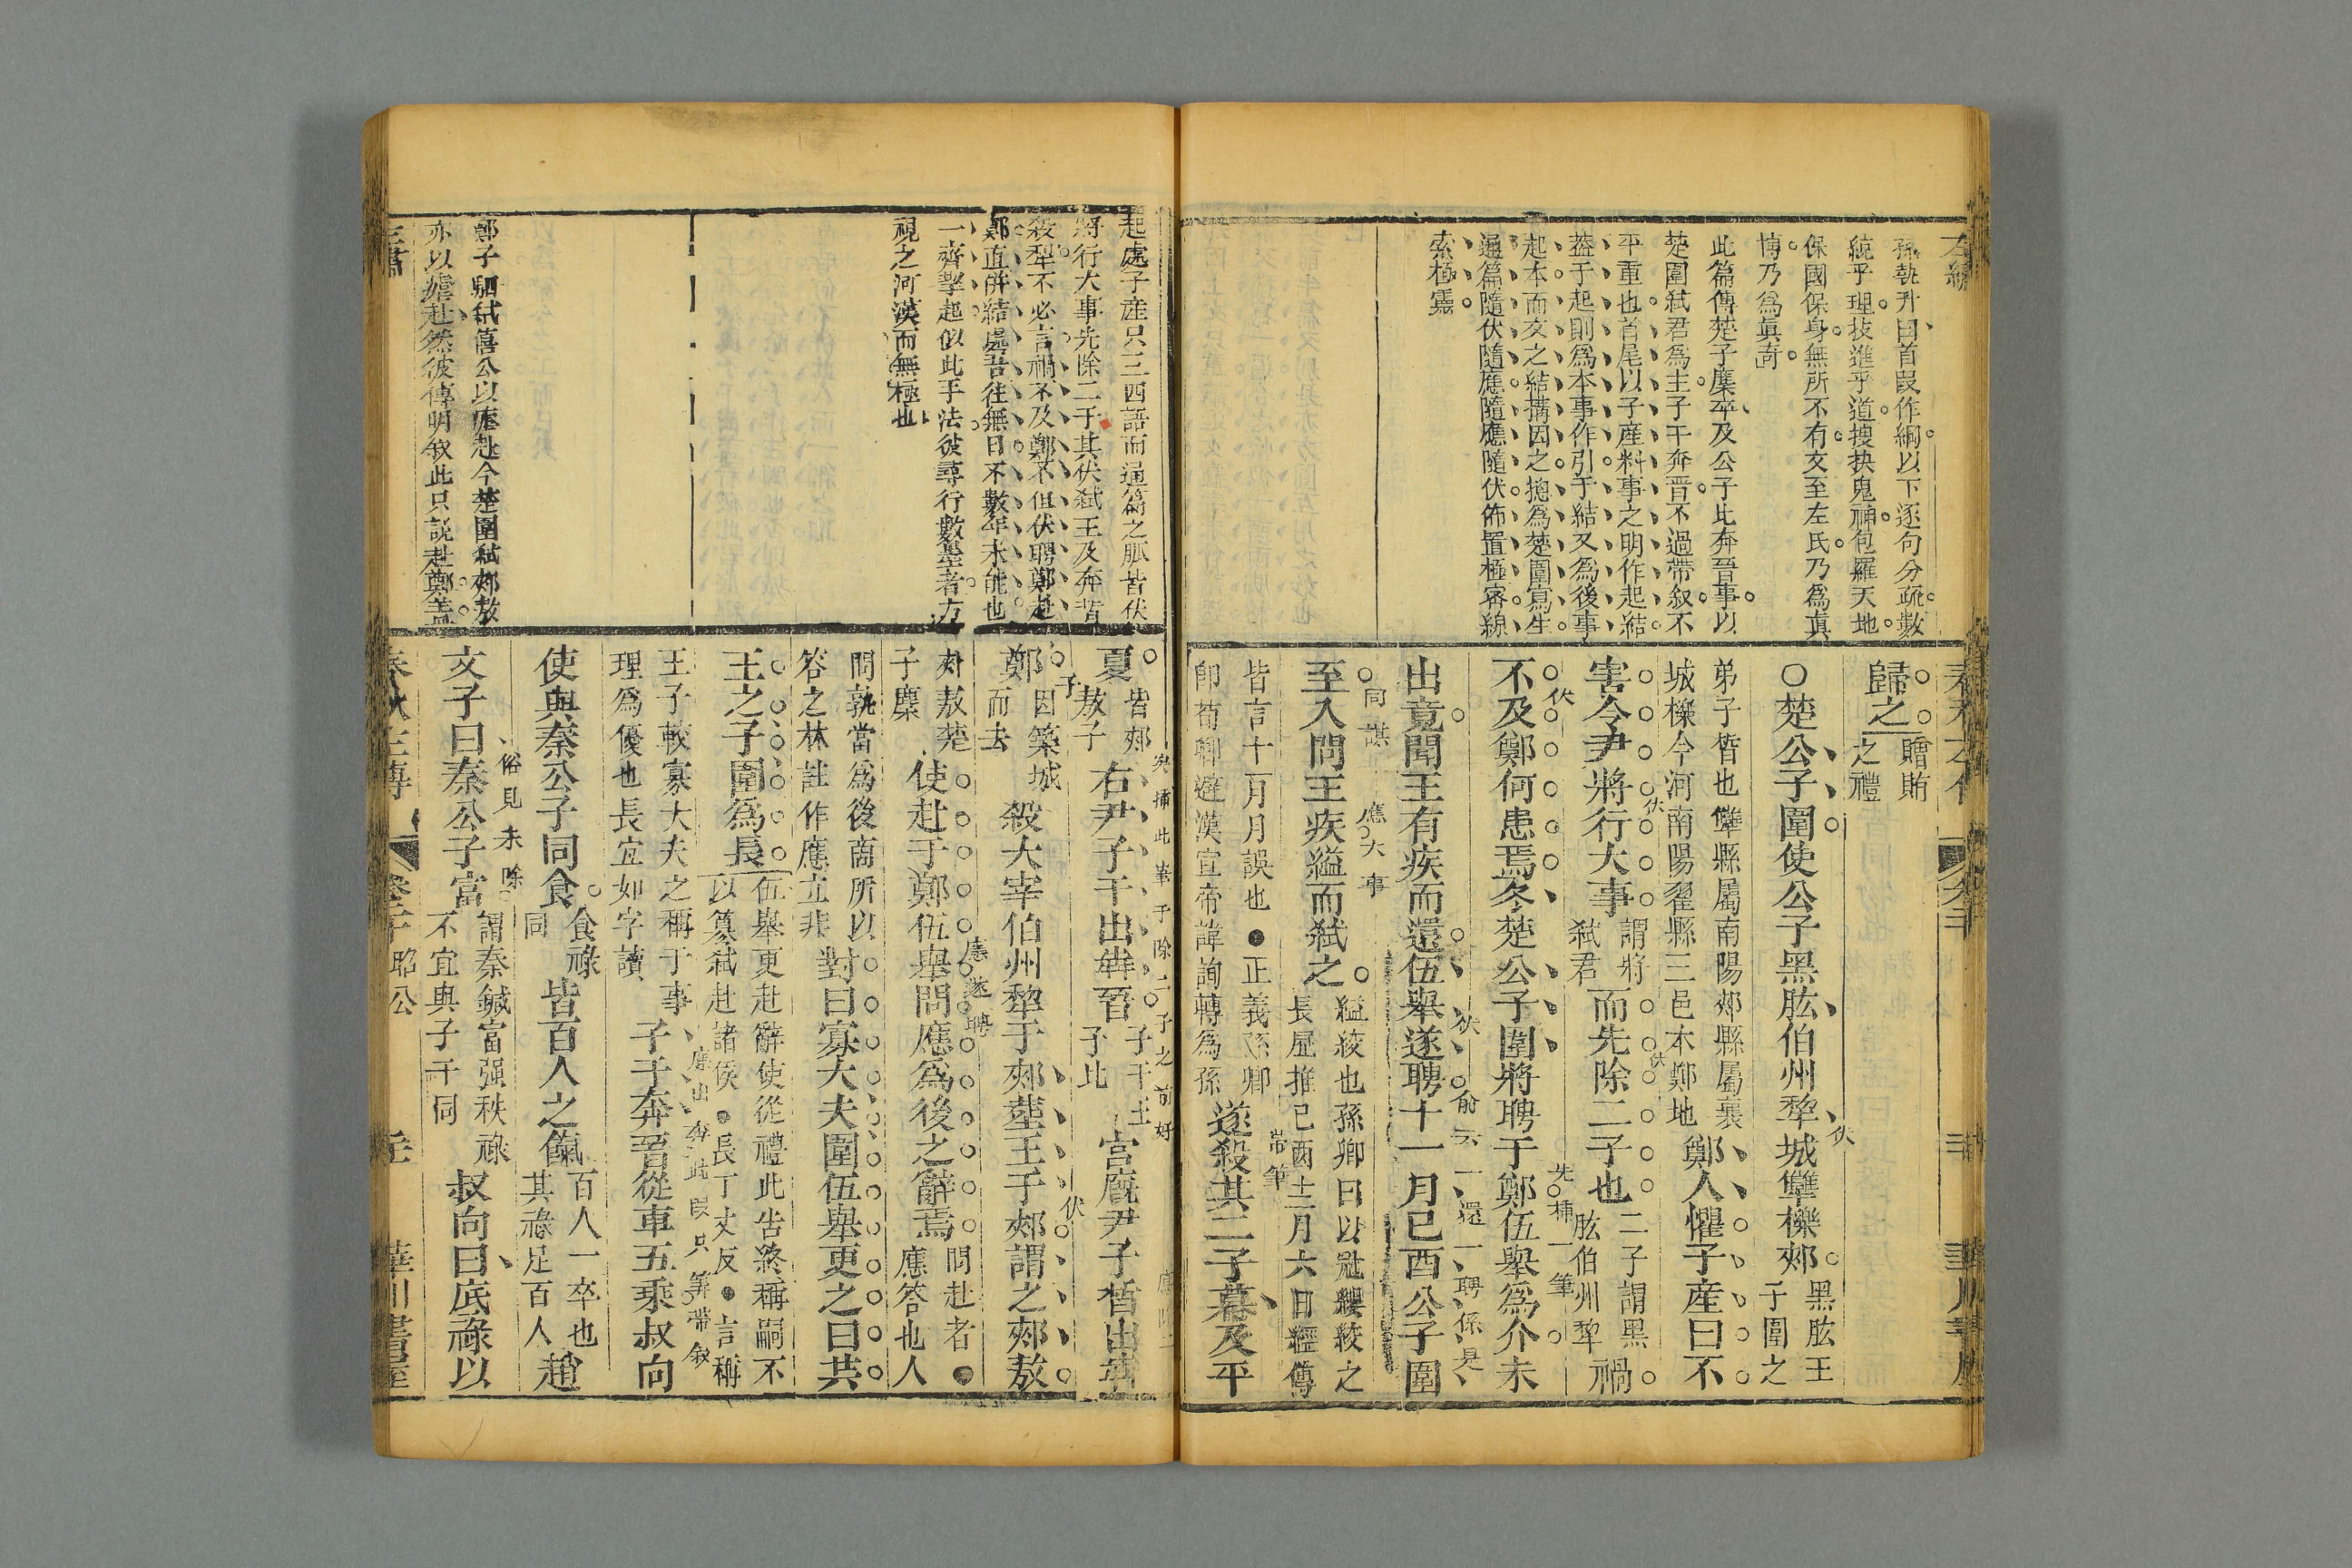 左繡
孫執升曰首叚作綱以下逐句分疏數
統乎理技進乎道搜抉鬼神包羅天地
保國保身無所不有文至左氏乃爲眞
博乃爲眞奇
此篇傳楚子麇卒及公子比奔晉事以
楚圍弑君爲主子干奔晉不過帶叙不
平重也首尾以子産料事之明作起結
葢于起則爲本事作引于結又爲後事
起本而文之結搆因之摠爲楚圍寫生
通篇隨伏隨應隨應隨伏佈置極密線
索極靈
歸之
贈賄
之禮
○楚公子圍使公子黑肱伯州犂城犨櫟郟
黑肱王
子圍之
弟子皙也犨縣屬南陽郟縣屬襄
城櫟今河南陽翟縣三邑本鄭地
鄭人懼子産曰不
害令尹將行大事
謂將
弑君
而先除二子也
二子謂黑
肱伯州犂
禍
不及鄭何患焉冬楚公子圍將聘于鄭伍舉爲介未
出竟聞王有疾而還伍舉遂聘十一月己酉公子圍
至入問王疾縊而弑之
縊絞也孫卿曰以冠纓絞之
長歷推己酉十二月六日經傳
皆言十一月月誤也●正義孫卿
卽荀卿避漢宣帝諱詢轉爲孫
遂殺其二子幕及平
伏
伏
伏
伏
先揷一筆
伏
俞云一還一聘係是
同謀
應大事
帶筆
起處子産只三四語而通篇之脈皆伏
將行大事先除二子其伏弑王及奔皆
殺犂不必言禍不及鄭不但伏聘鄭赴
鄭直併結處吾往無日不數年未能也
一齊挈起似此手法彼尋行數墨者方
視之河漢而無極也
鄭子駟弑僖公以瘧赴今楚圍弑郟敖
亦以瘧赴然彼傳明叙此只説赴鄭葢
夏
皆郟
敖子
右尹子干出奔晉
子干王
子比
宮廐尹子皙出奔
鄭
因築城
而去
殺大宰伯州犂于郟葬王于郟謂之郟敖
郟敖楚
子麇
使赴于鄭伍舉問應爲後之辭焉
問赴者●
應答也人
問孰當爲後商所以
答之林註作應立非
對曰寡大夫圍伍舉更之曰共
王之子圍爲長
伍舉更赴辭使從禮此告終稱嗣不
以簒弑赴諸侯●長丁丈反●言稱
王子較寡大夫之稱于事
理爲優也長宜如字讀
子干奔晉從車五乘叔向
使與秦公子同食
食祿
同
皆百人之餼
百人一卒也
其祿足百人
趙
文子曰秦公子富
謂秦鍼富强秩祿
不宜與子干同
叔向曰底祿以
夾揷此筆于除二子之前好
伏
應遂聘
應出奔此叚只筭帶叙
俗見未除
昭公